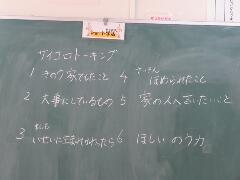 サイコロトーキング
1 きのう家でしたこと
2 大事にしているもの
3 もしもいせいに生まれかわったら
4 さいきんほめられたこと
5 家の人へ言いたいこと
6 ほしい のう力